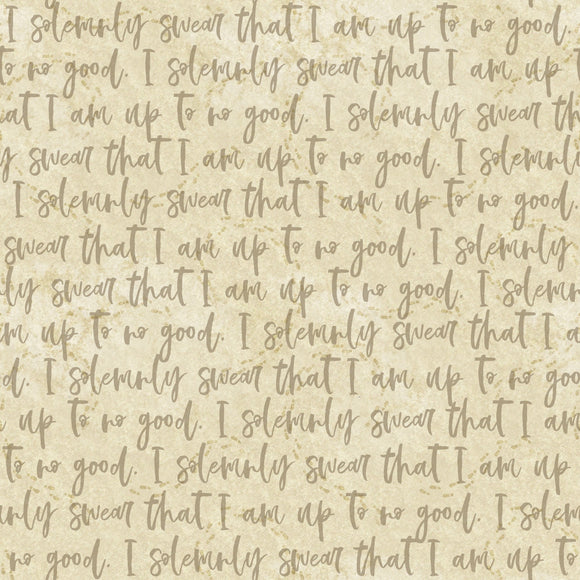 I solemnly swear that I am up to no good.
to no good. I solemnly swear that I am up
at I am up to no good. I solemnly swear th
y swear that I am up to no good. I solemnl
I solemnly swear that I am up to no good.
swear that I am up to no good. I solemnly
ly swear that I am up to no good. I solemn
m up to no good. I solemnly swear that I a
d. I solemnly swear that I am up to no goo
am up to no good. I solemnly swear that I am
to no good. I solemnly swear that I am up
nly swear that I am up to no good. I solem
no good. I solemnly swear that I am up to